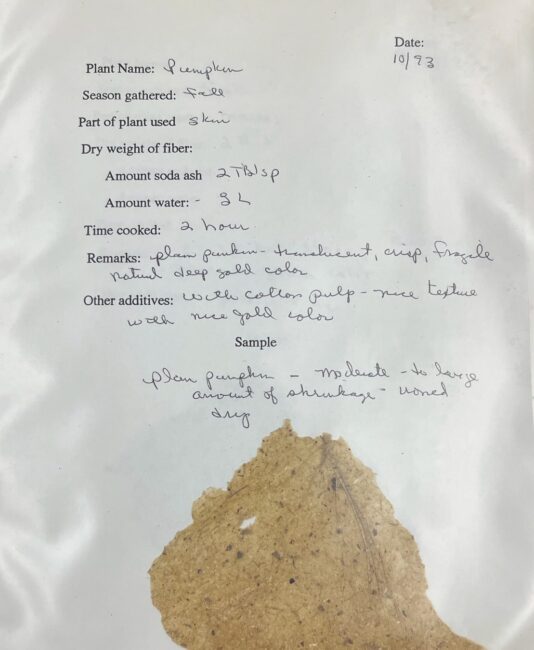 Date:
10/93
Plant Name: Pumpkin
Season gathered: Fall
Part of plant used skin
Dry weight of fiber:
Amount soda ash 2 TBlsp
Amount water: - 3 L
Time cooked: 2 hour
Remarks: plain punkin - translucent, crisp, fragile
natural deep gold color
Other additives: with cotton pulp - nice texture
with nice gold color
Sample
plain pumpkin - moderate - to large
amount of shrinkage - ironed
dry